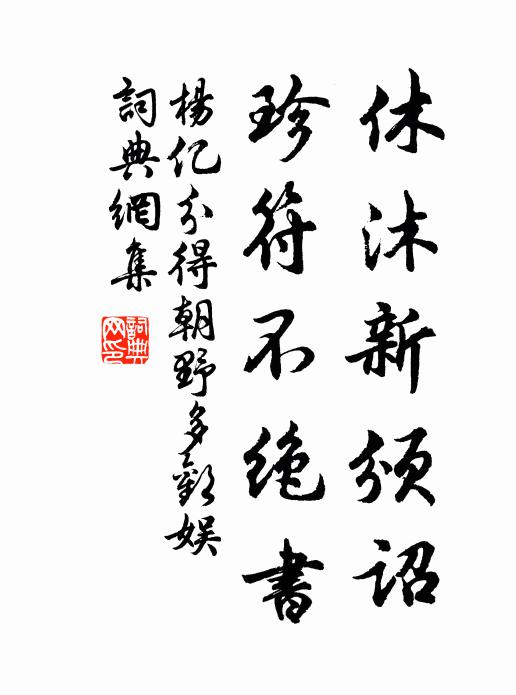 休沐新頒詔
珍符不絶書
楊亿分得朝野多歡娱
詞典網集
詞典網印